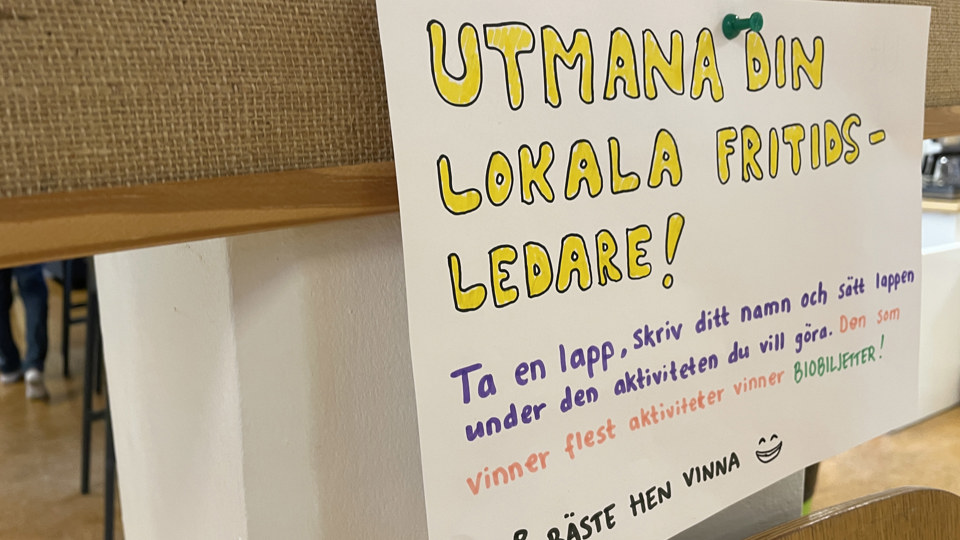 UTMANA DIN
LOKALA FRITIDS-
LEDARE!
Ta en lapp, skriv ditt namn och sätt lappen
under den aktiviteten du vill göra. Den som
vinner flest aktiviteter vinner BIOBILJETTER!
BÄSTE HEN VINNA